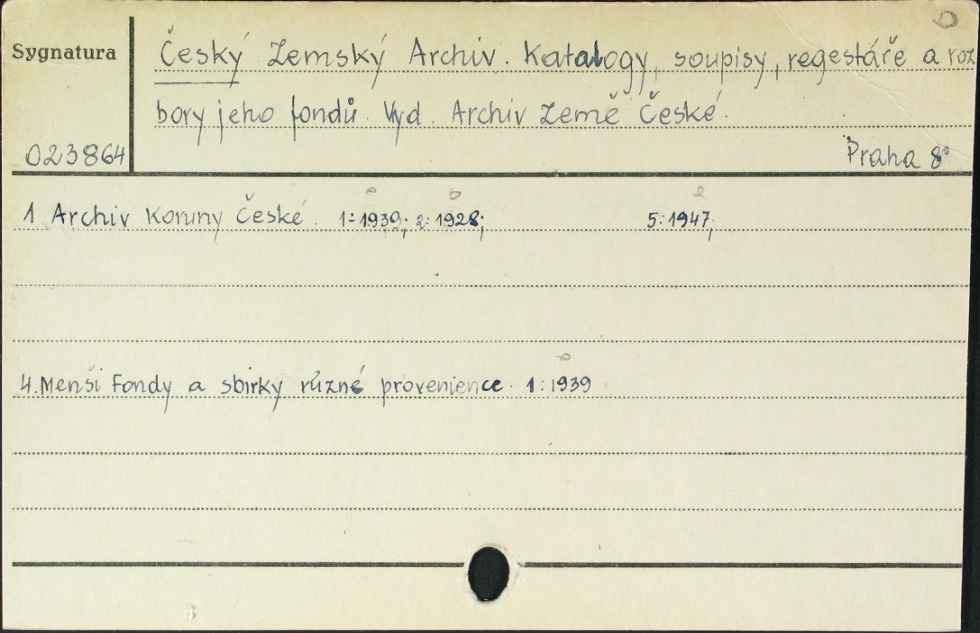 Sygnatura
Český Zemský Archiv. Katalogy, soupisy, regestáře a roz
bory jeho fondů. Vyd. Archiv Země České.
023864
Praha 8°
1 Archiv Koruny České. 1:1939; 2:1928; 5:1947;
4. Menší Fondy a sbírky různé provenience. 1:1939